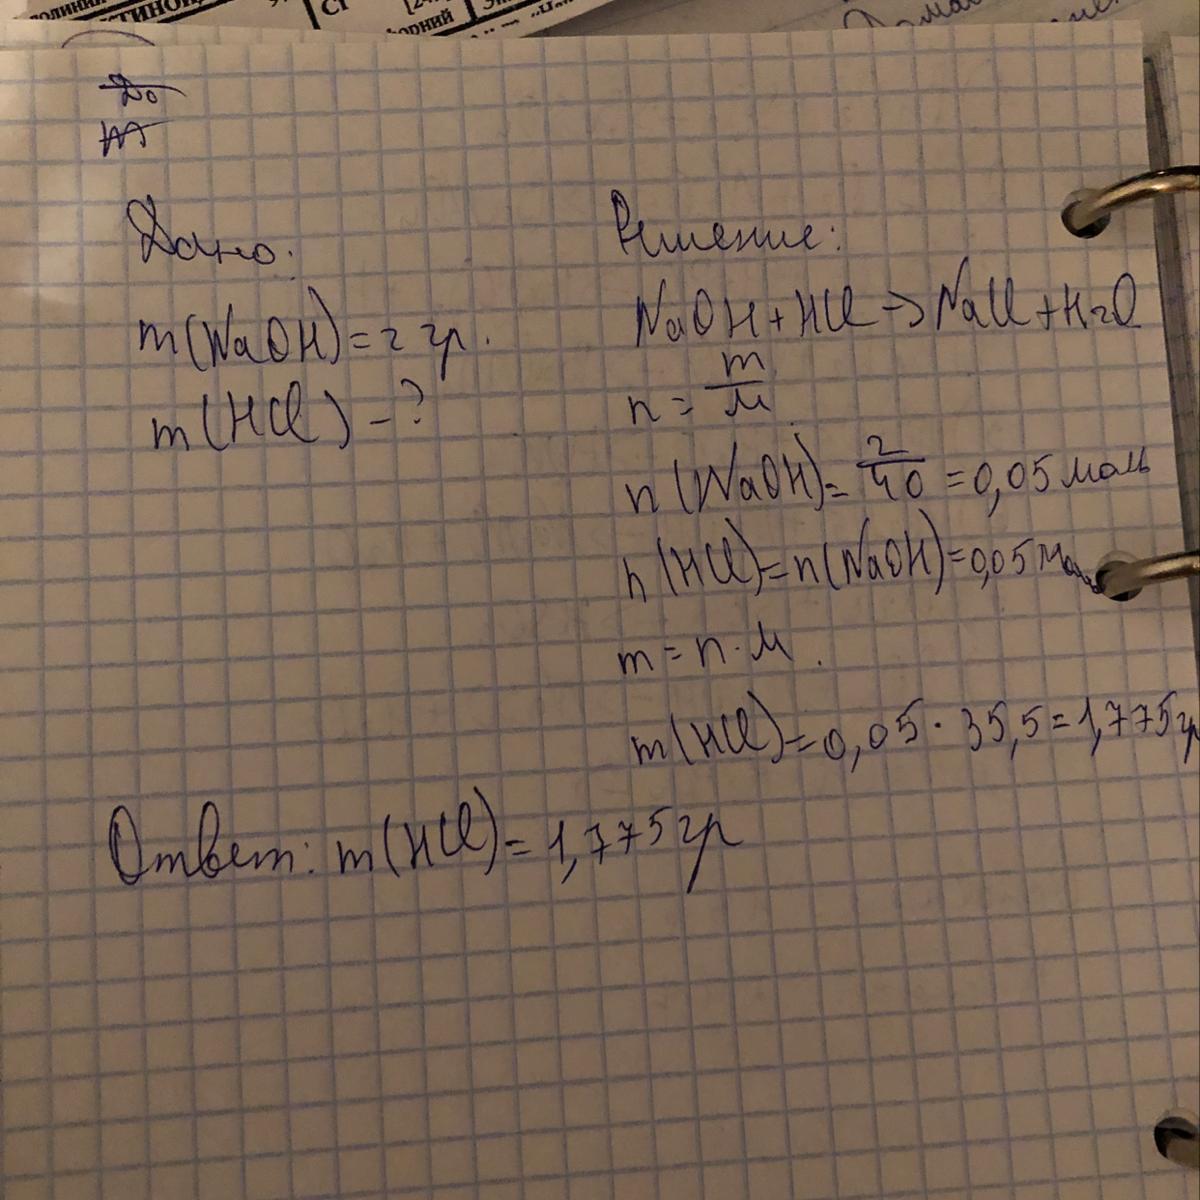 Дано:
m(NaOH)=2 гр.
m(HCl)-?
Решение:
NaOH+HCl→NaCl+H2O
n=m/M
n(NaOH)=2/40=0,05 моль
n(HCl)=n(NaOH)=0,05 моль
m=n·M.
m(HCl)=0,05·35,5=1,775гр
Ответ: m(HCl)=1,775гр